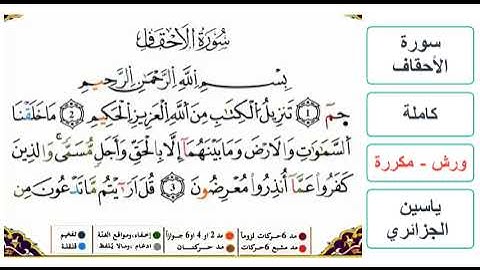 سُورَةُ الأَحْقَافِ
بِسْمِ اللَّهِ الرَّحْمَٰنِ الرَّحِيمِ
حمٓ (1) تَنزِيلُ الْكِتَٰبِ مِنَ اللَّهِ الْعَزِيزِ الْحَكِيمِ (2) مَا خَلَقْنَا
السَّمَٰوَٰتِ وَالأَرْضَ وَمَا بَيْنَهُمَا إِلَّا بِالْحَقِّ وَأَجَلٍ مُّسَمًّى وَالذِينَ
كَفَرُوا عَمَّا أُنذِرُوا مُعْرِضُونَ (3) قُلْ أَرَٰيْتُم مَّا تَدْعُونَ مِن
مد 6 حركات لزوما
مد 2 او 4 او 6 جوازا
إخفاء، ومواقع الغنة
تفخيم
مد مشبع 6 حركات
مد حركتان
ادغام ، ومالا يلفظ
قلقلة
سورة
الأحقاف
كاملة
ورش - مكررة
ياسين
الجزائري